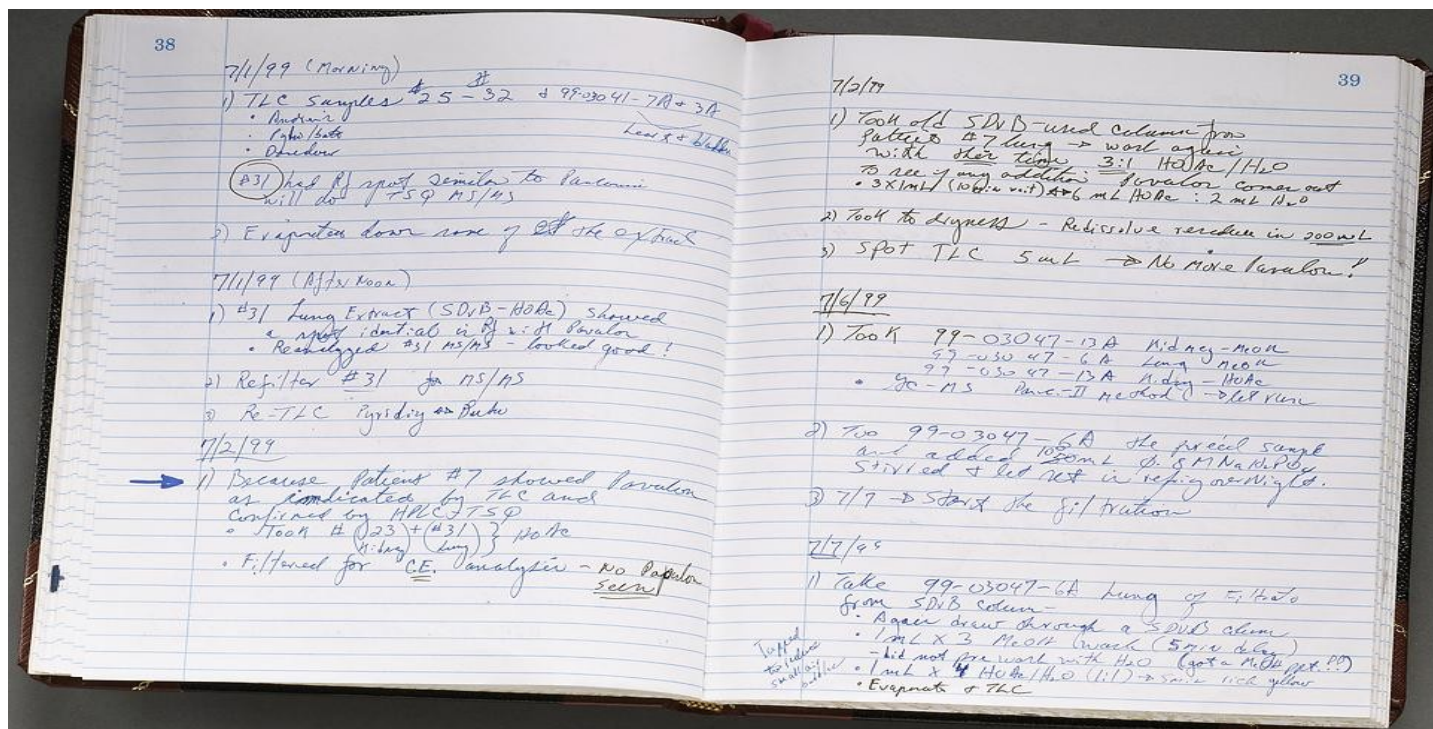 38
7/1/99 (Morning)
1) TLC samples #25 - #32 & 99-03041-7A & 3A
Heart +
• Pavulon
#31 had Rf spot similar to
will do TSQ MS/MS
2) down some of the extract
7/1/99 (AfterNoon)
1) #31 Lung Extract (SDVB-HOAc) showed
a spot idential in Rf with Pavulon
• Reanalyzed #31 MS/MS - looked good!
2) Refilter #31 for MS/MS
3) Re-TLC
7/2/99
1) Because Patient #7 showed Pavulon
as indicated by TLC and
Confirmed by HPLC-TSQ
• Took # (23) + (#31) } HOAc
Kidney Lung
• Filtered for C.E. analysis - No Pavulon
Seen
39
7/2/99
1) Took old SDVB-used column from
Patient #7 lung → wash again
with this time 3:1 HOAc/H2O
To see if any addition Pavulon comes out
• 3X1mL (10 min wait) 6 mL HOAc : 2 mL H2O
2) Took to dryness - Redissolve residue in 200mL
3) Spot TLC 5 mL → No More Pavulon!
7/6/99
1) Took 99-03047-13A Kidney-MeOH
99-03047-6A Lung MeOH
99-03047-13A Kidney-HOAc
• gc-MS method → let run
2) 99-03047-6A the sample
and added 100mL 0.8M
Stirred & let set in refrig overNight.
3) 7/7 → Start the filtration
1) Take 99-03047-6A Lung
from SDVB column-
• Again draw through a SDVB column
• 1mL X 3 MeOH wash (5 min delay)
-did not prewash with H2O (got a MeOH ppt.??)
• 1mL X 4 HOAc/H2O (1:1) → rich yellow
• Evaporate & TLC
Tapped
to
small air